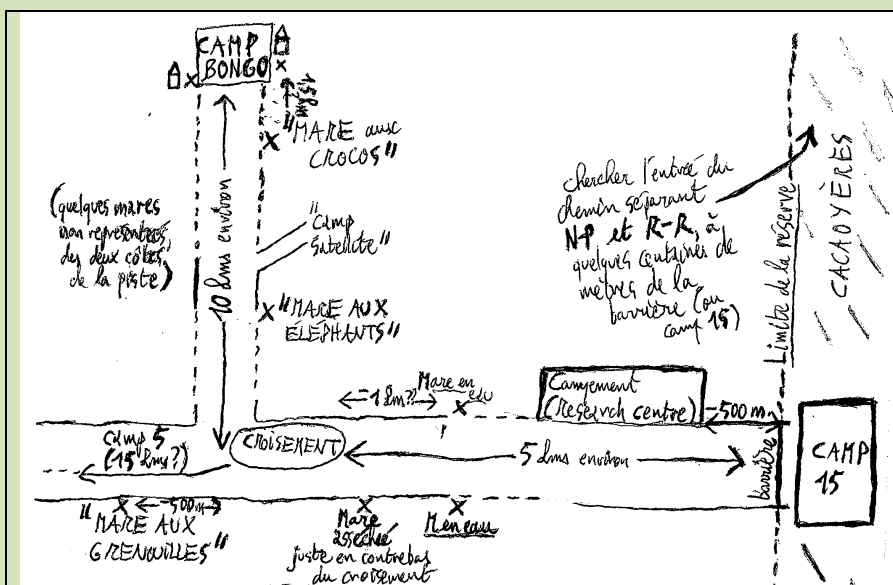 CAMP
BONGO
1,5 km
"MARE aux
CROCOS"
(quelques mares
non représentées
des deux côtés
de la piste)
10 kms environ
"Camp
Satellite"
"MARE AUX
ÉLÉPHANTS"
chercher l'entrée du
chemin séparant
N-P et R-R, à
quelques centaines de
mètres de la
barrière (ou
camp 15)
Limite de la réserve
CACAOYÈRES
1 km??
Mare en
eau
Campement
(research centre)
500 m
Camp 5
(15 kms?)
CROISEMENT
5 kms environ
barrière
CAMP
15
500 m
"MARE AUX
GRENOUILLES"
Mare
asséchée
juste en contrebas
du croisement
M en eau